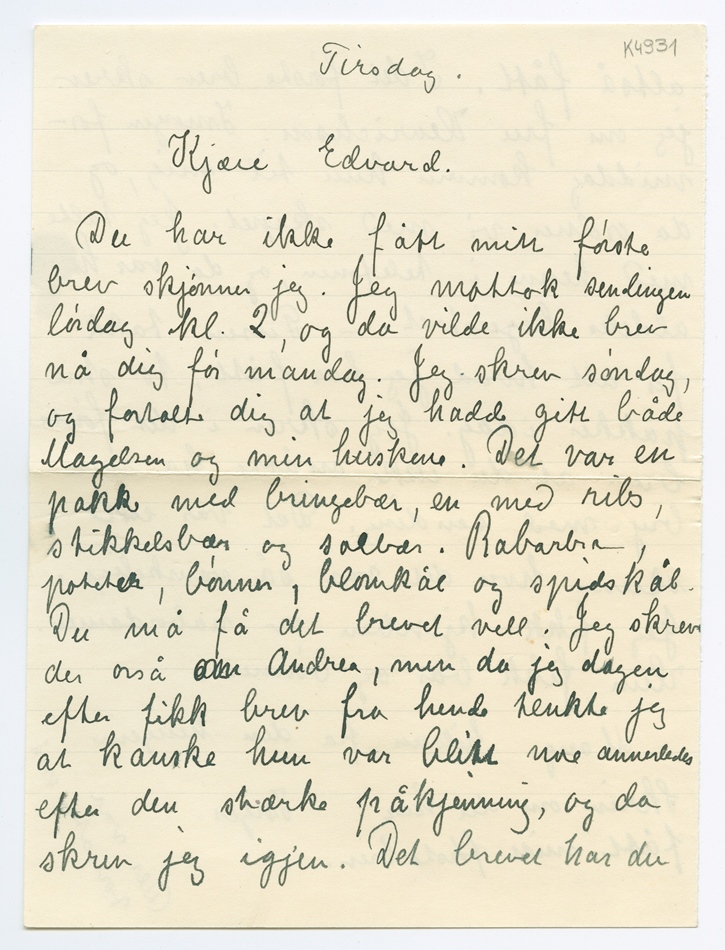 K4931
Tirsdag.
Kjære Edvard.
Du har ikke fått mitt første
brev skjønner jeg. Jeg mottok sendingen
lørdag kl. 2, og da vilde ikke brev
nå dig før mandag. Jeg skrev søndag,
og fortalte dig at jeg hadde gitt både
Magelsen og min huskene. Det var en
pakk med bringebær, en med ribs,
stikkelsbær og solbær. Rabarbra,
poteter, bønner, blomkål og spidskål.
Du må få det brevet vell. Jeg skrev
der også om Andrea, men da jeg dagen
efter fikk brev fra hende tenkte jeg
at kanske hun var blitt noe annerledes
efter den stærke påkjenning, og da
skrev jeg igjen. Det brevet har du